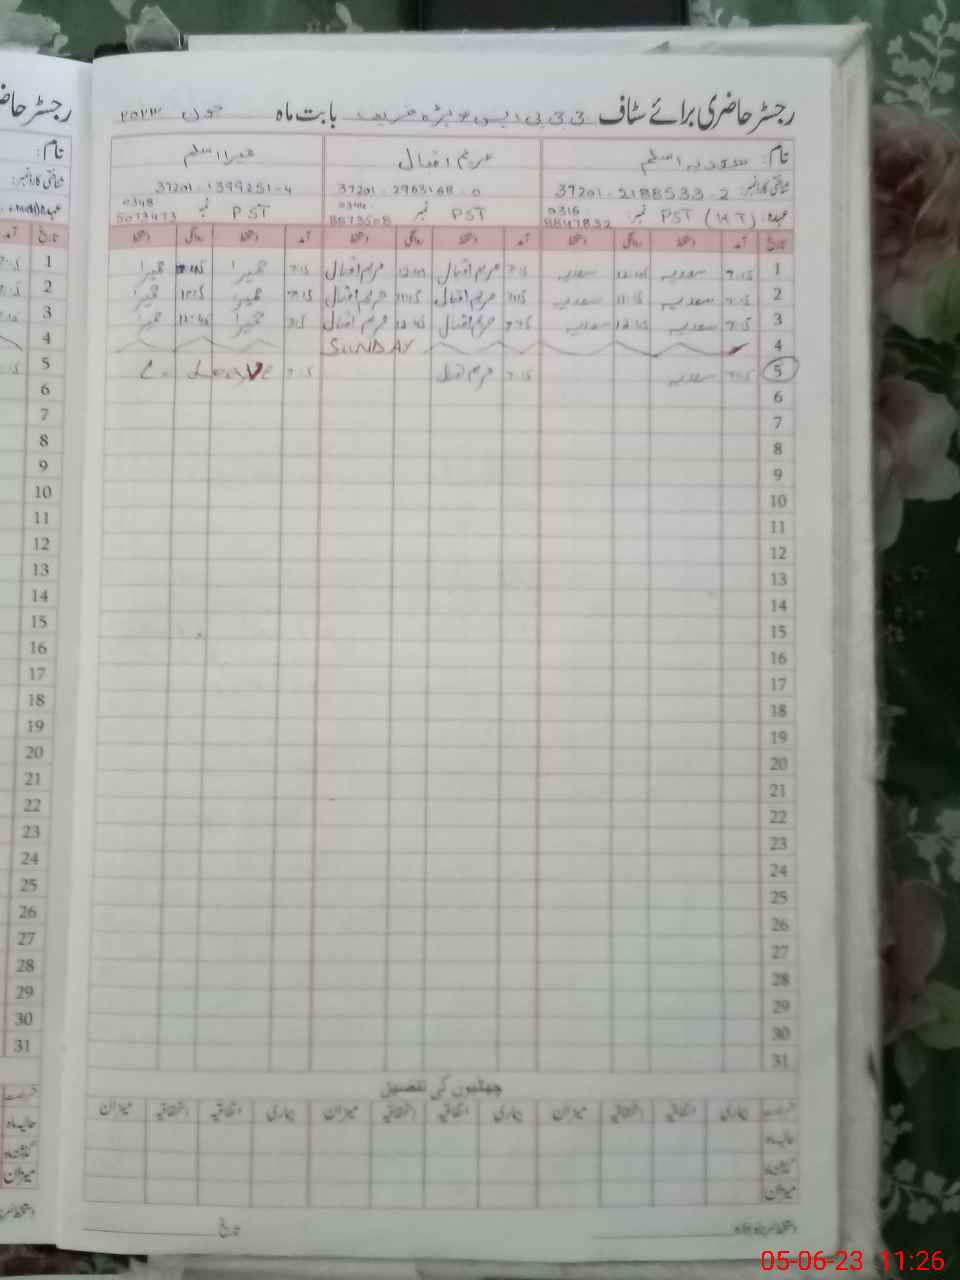 رجسٹر حاضری برائے سٹاف بابت ماہ جون ۲۰۲۳
نام: سعدیہ اسلم مریم اقبال حمیرا اسلم
شناختی کارڈ نمبر: 37201-2188533-2 37201-2963168-0 37201-1399251-4
عہدہ: PST (HT) نمبر: 0316 8847832 PST نمبر 0344 8873508 PST نمبر 0348 5073473
تاریخ آمد دستخط روانگی دستخط آمد دستخط روانگی دستخط آمد دستخط روانگی دستخط
1 7:15 سعدیہ 12:45 سعدیہ 7:15 مریم اقبال 12:45 مریم اقبال 7:15 حمیرا 12:45 حمیرا
2 7:15 سعدیہ 11:15 سعدیہ 7:15 مریم اقبال 11:15 مریم اقبال 7:15 حمیرا 11:15 حمیرا
3 7:15 سعدیہ 12:45 سعدیہ 7:15 مریم اقبال 12:45 مریم اقبال 7:15 حمیرا 12:45 حمیرا
4 SUNDAY
5 7:15 سعدیہ 7:15 مریم اقبال 7:15 C. Leave
6
7
8
9
10
11
12
13
14
15
16
17
18
19
20
21
22
23
24
25
26
27
28
29
30
31
چھٹیوں کی تفصیل
رخصت بیماری اتفاقیہ استحقاقیہ میزان بیماری اتفاقیہ استحقاقیہ میزان بیماری اتفاقیہ استحقاقیہ میزان
حالیہ ماہ
گذشتہ ماہ
میزان
دستخط سربراہ ادارہ تاریخ
رجسٹر
نام:
شناختی کارڈ نمبر:
تاریخ آمد
1
2
3
4
5
6
7
8
9
10
11
12
13
14
15
16
17
18
19
20
21
22
23
24
25
26
27
28
29
30
31
05-06-23 11:26